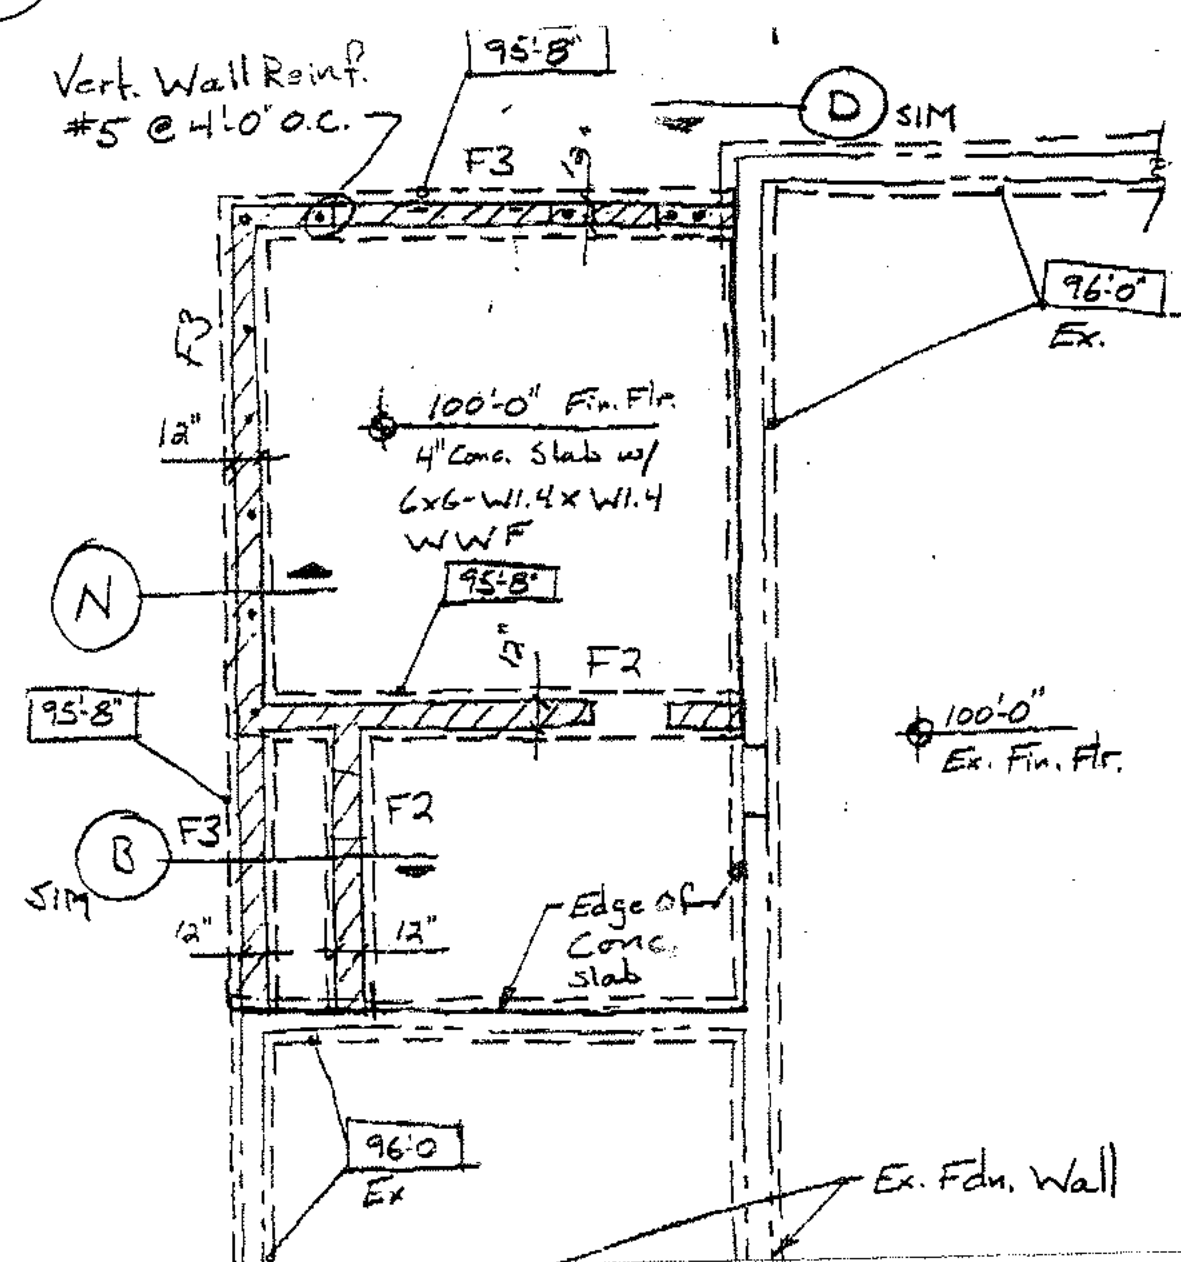 95'-8"
Vert. Wall Reinf.
#5 @ 4'-0" O.C.
D
SIM
F3
12"
96'-0"
Ex.
F3
12"
100'-0" Fin. Flr.
4" Conc. Slab w/
6x6-W1.4xW1.4
WWF
95'-8"
N
12"
F2
95'-8"
100'-0"
Ex. Fin. Flr.
F3
F2
B
SIM
12"
12"
Edge of
Conc.
slab
96'-0
Ex
Ex. Fdn. Wall